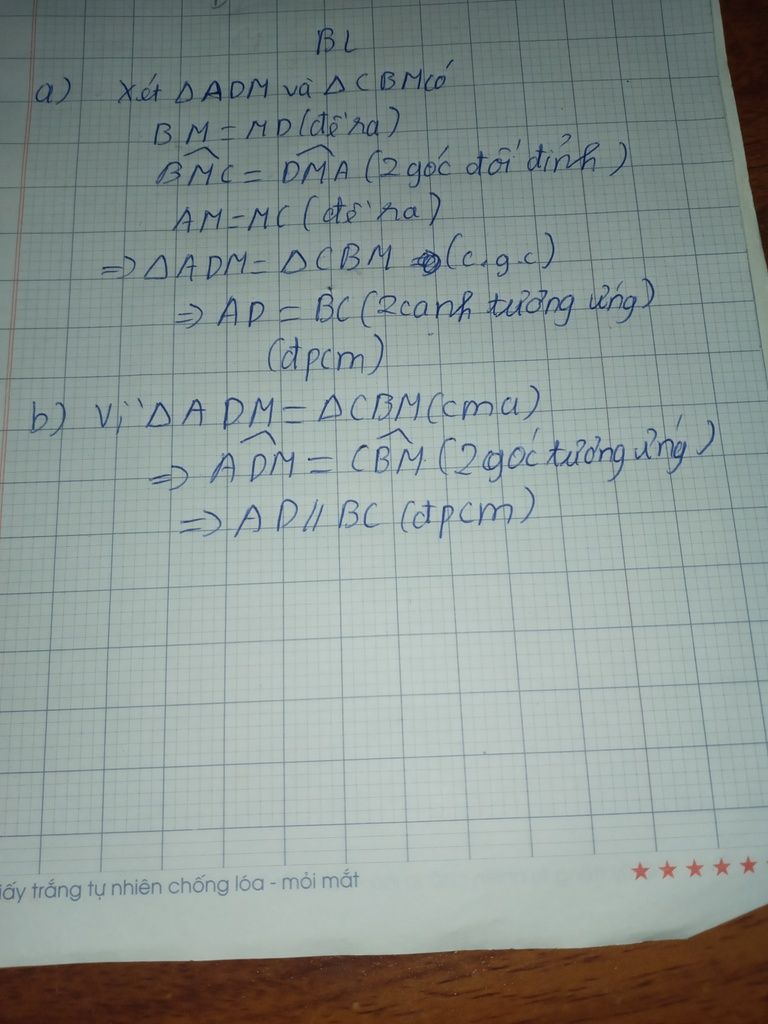 BL
a) Xét ΔADM và ΔCBM có
BM = MD (đề ra)
BMC = DMA (2 góc đối đỉnh)
AM = MC (đề ra)
=> ΔADM = ΔCBM (c.g.c)
=> AD = BC (2 cạnh tương ứng)
(đpcm)
b) Vì ΔADM = ΔCBM (cma)
=> ADM = CBM (2 góc tương ứng)
=> AD // BC (đpcm)
iấy trắng tự nhiên chống lóa - mỏi mắt